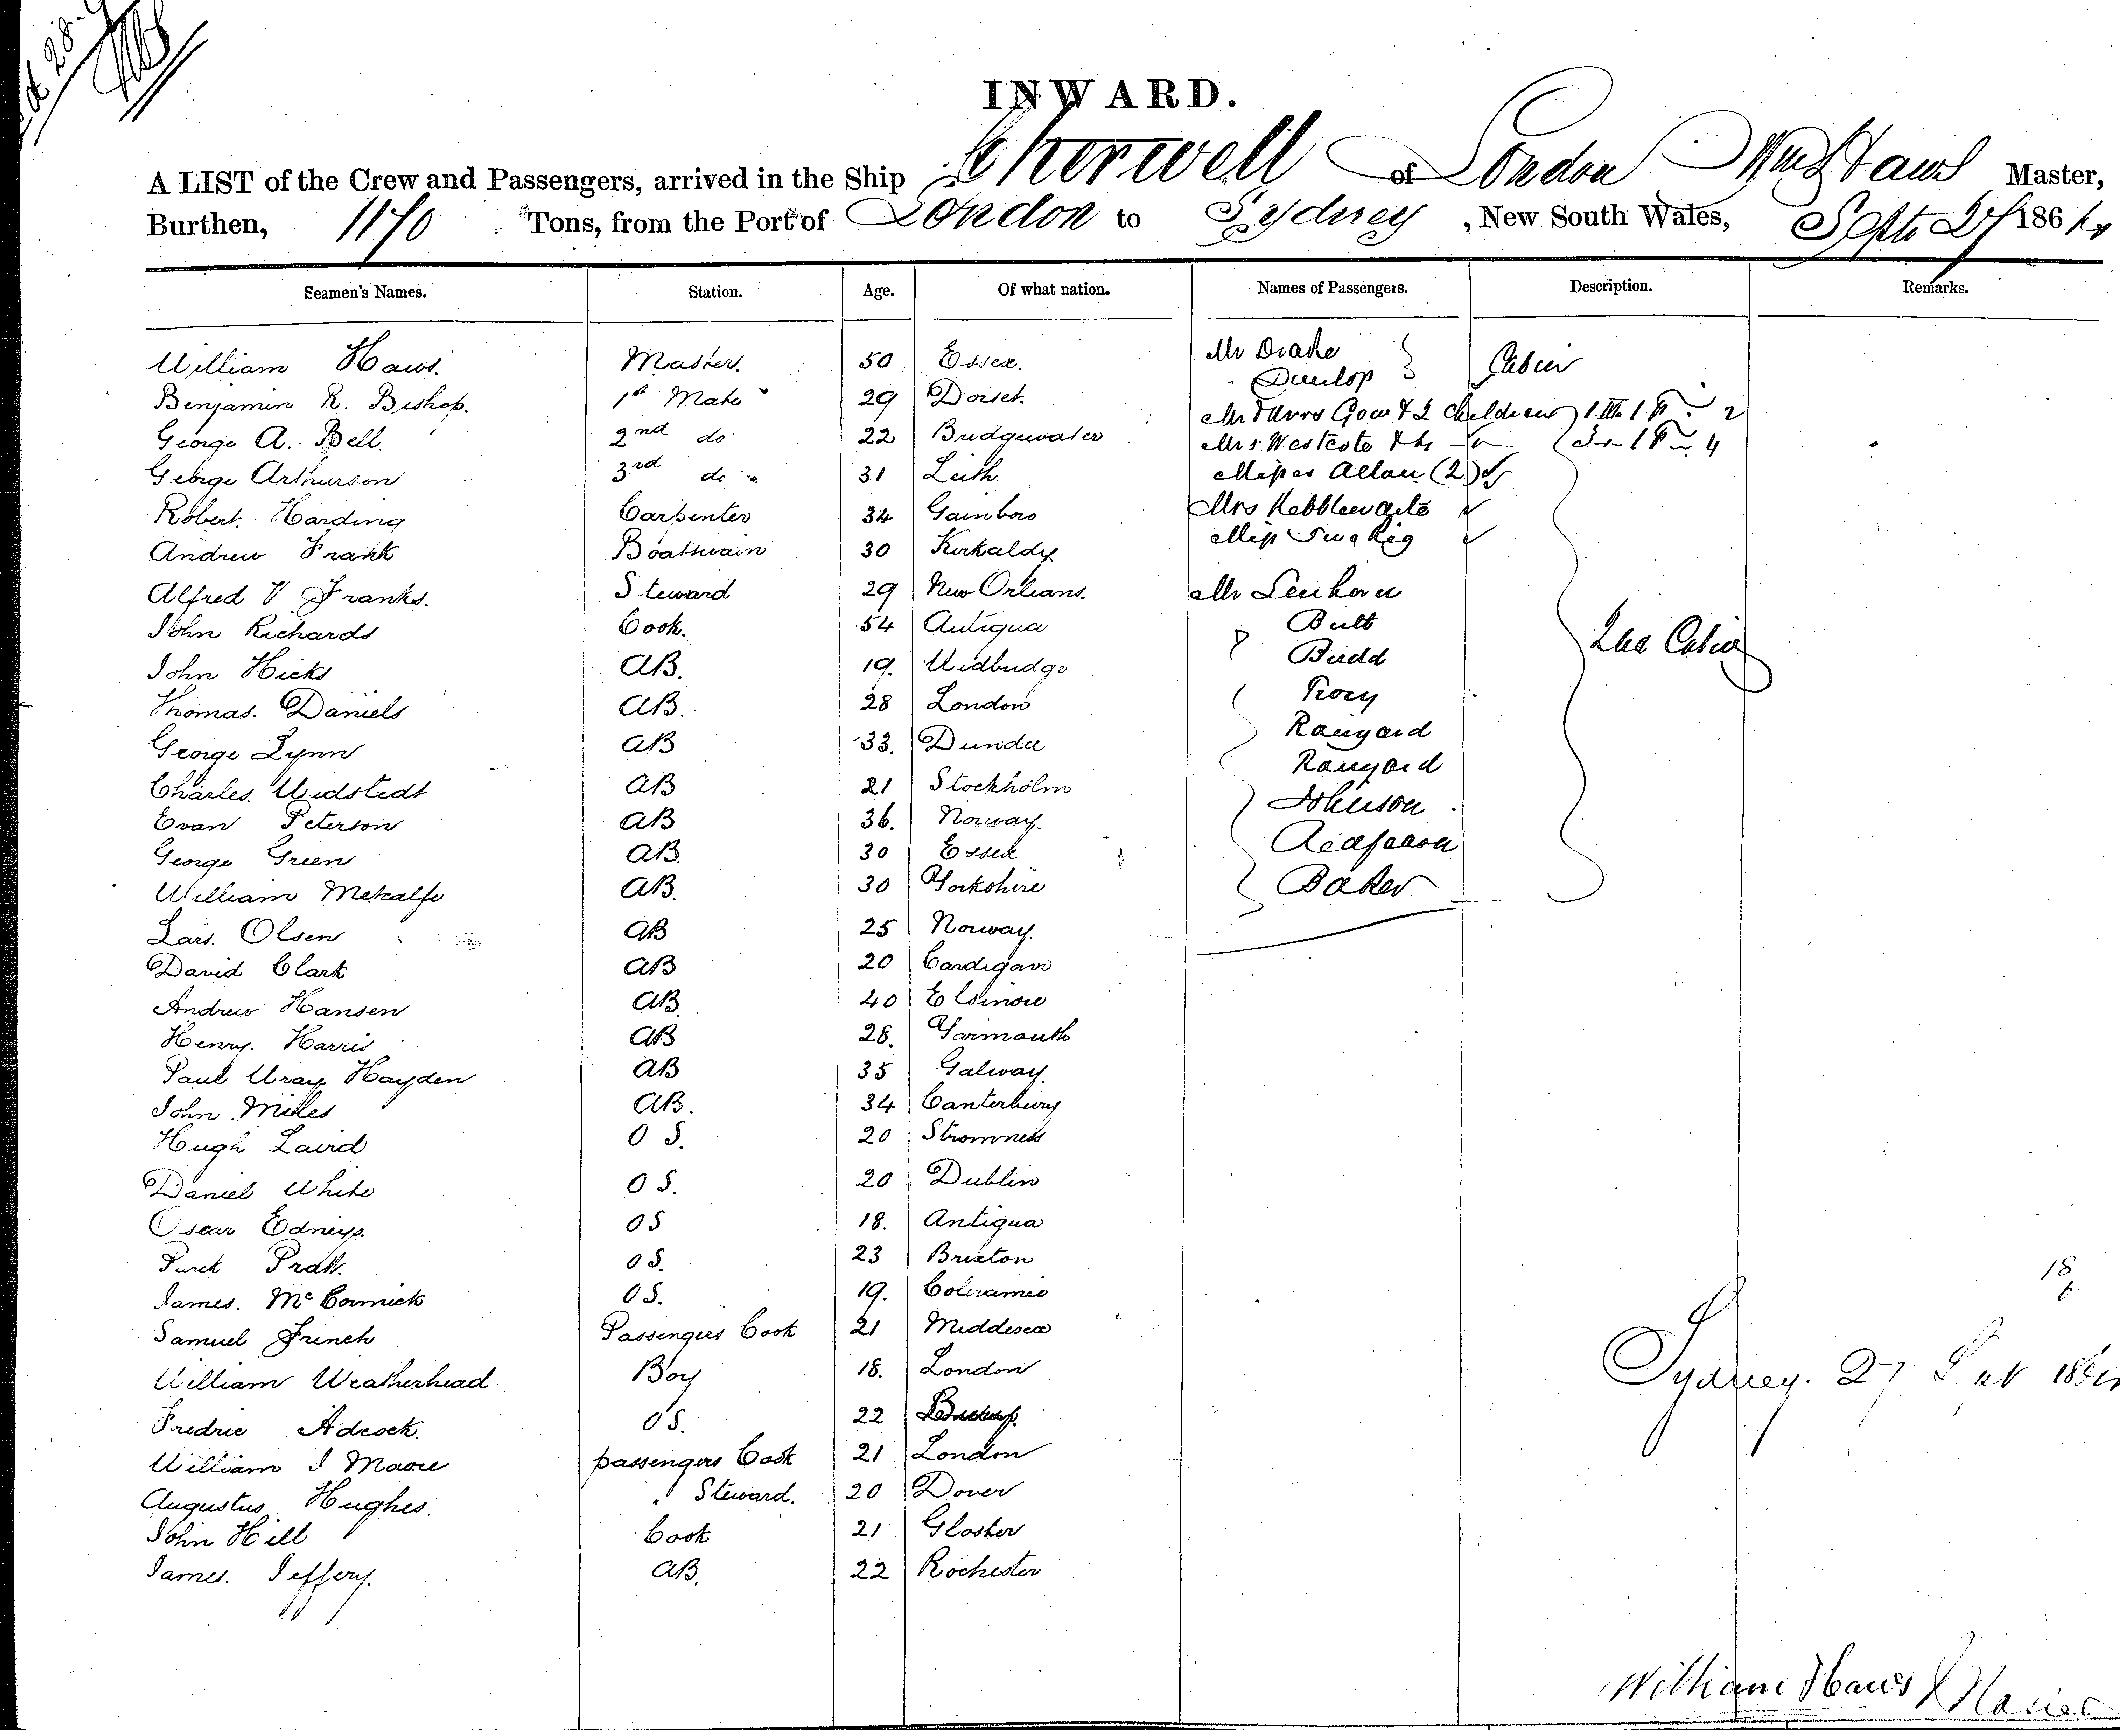 INWARD.
A LIST of the Crew and Passengers, arrived in the Ship Cherwell of London Wm Haws Master,
Burthen, 1170 Tons, from the Port of London to Sydney, New South Wales, Septr 27 186
Seamen's Names. Station. Age. Of what nation. Names of Passengers. Description. Remarks.
William Haws. Master. 50 Essex. Mr Drake Cabin
Dunlop
Benjamin R. Bishop. 1st Mate 29 Dorset. Mr & Mrs Gow & 2 Children
George A. Bell. 2nd do 22 Bridgewater Mrs Westcote & 4
George Arthurson 3rd do 31 Leith Misses Allan (2)
Robert Harding Carpenter 34 Gainboro Mrs Kebblewaite
Andrew Frank Boatswain 30 Kirkaldy Miss
Alfred V Franks. Steward 29 New Orleans. Mr
John Richards Cook. 54 Antigua Butt 2nd Cabin
John Hicks AB. 19. Widbridge Budd
Thomas Daniels AB. 28 London
George Lynn AB 33. Dundee Ranyard
Charles Widstedt AB 21 Stockholm Ranyard
Evan Peterson AB 36. Norway Johnson
George Green AB 30 Essex
William Metcalfe AB. 30 Yorkshire Baker
Lars Olsen AB 25 Norway.
David Clark AB 20 Cardigan
Andrew Hansen AB 40 Elsinore
Henry Harris AB 28. Yarmouth
Paul Uray Hayden AB 35 Galway.
John Miles AB. 34 Canterbury
Hugh Laird O S. 20 Stromness
Daniel White O S. 20 Dublin
Oscar Edneys. O S 18. Antigua
Pratt. O S. 23 Brixton
James McCormick O S. 19. Coleraine
Samuel French Passengers Cook 21 Middlesex
William Weatherhead Boy 18. London
Fredric Adcock. O S. 22
William J Moore passengers Cook 21 London
Augustus Hughes. " Steward. 20 Dover
John Hill Cook 21 Gloster
James Jeffery. AB. 22 Rochester
Sydney. 27
William Haws Master